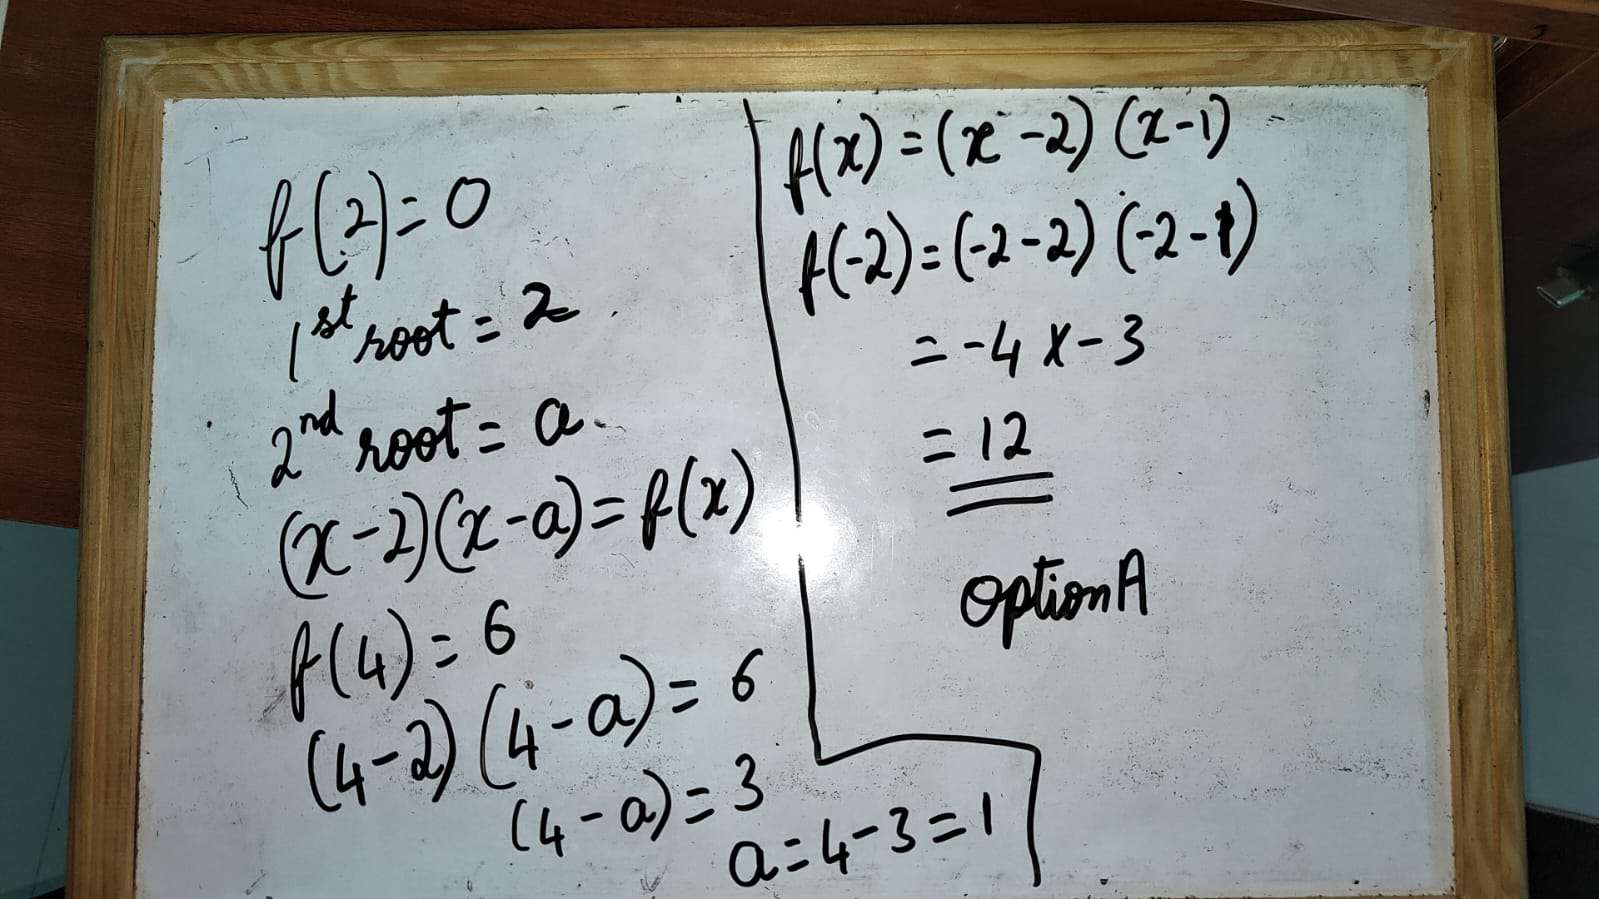 f(2) = 0
1st root = 2
2nd root = a
(x-2)(x-a) = f(x)
f(4) = 6
(4-2) (4-a) = 6
(4-a) = 3
a = 4-3 = 1
f(x) = (x-2) (x-1)
f(-2) = (-2-2) (-2-1)
= -4 x -3
= 12
option A